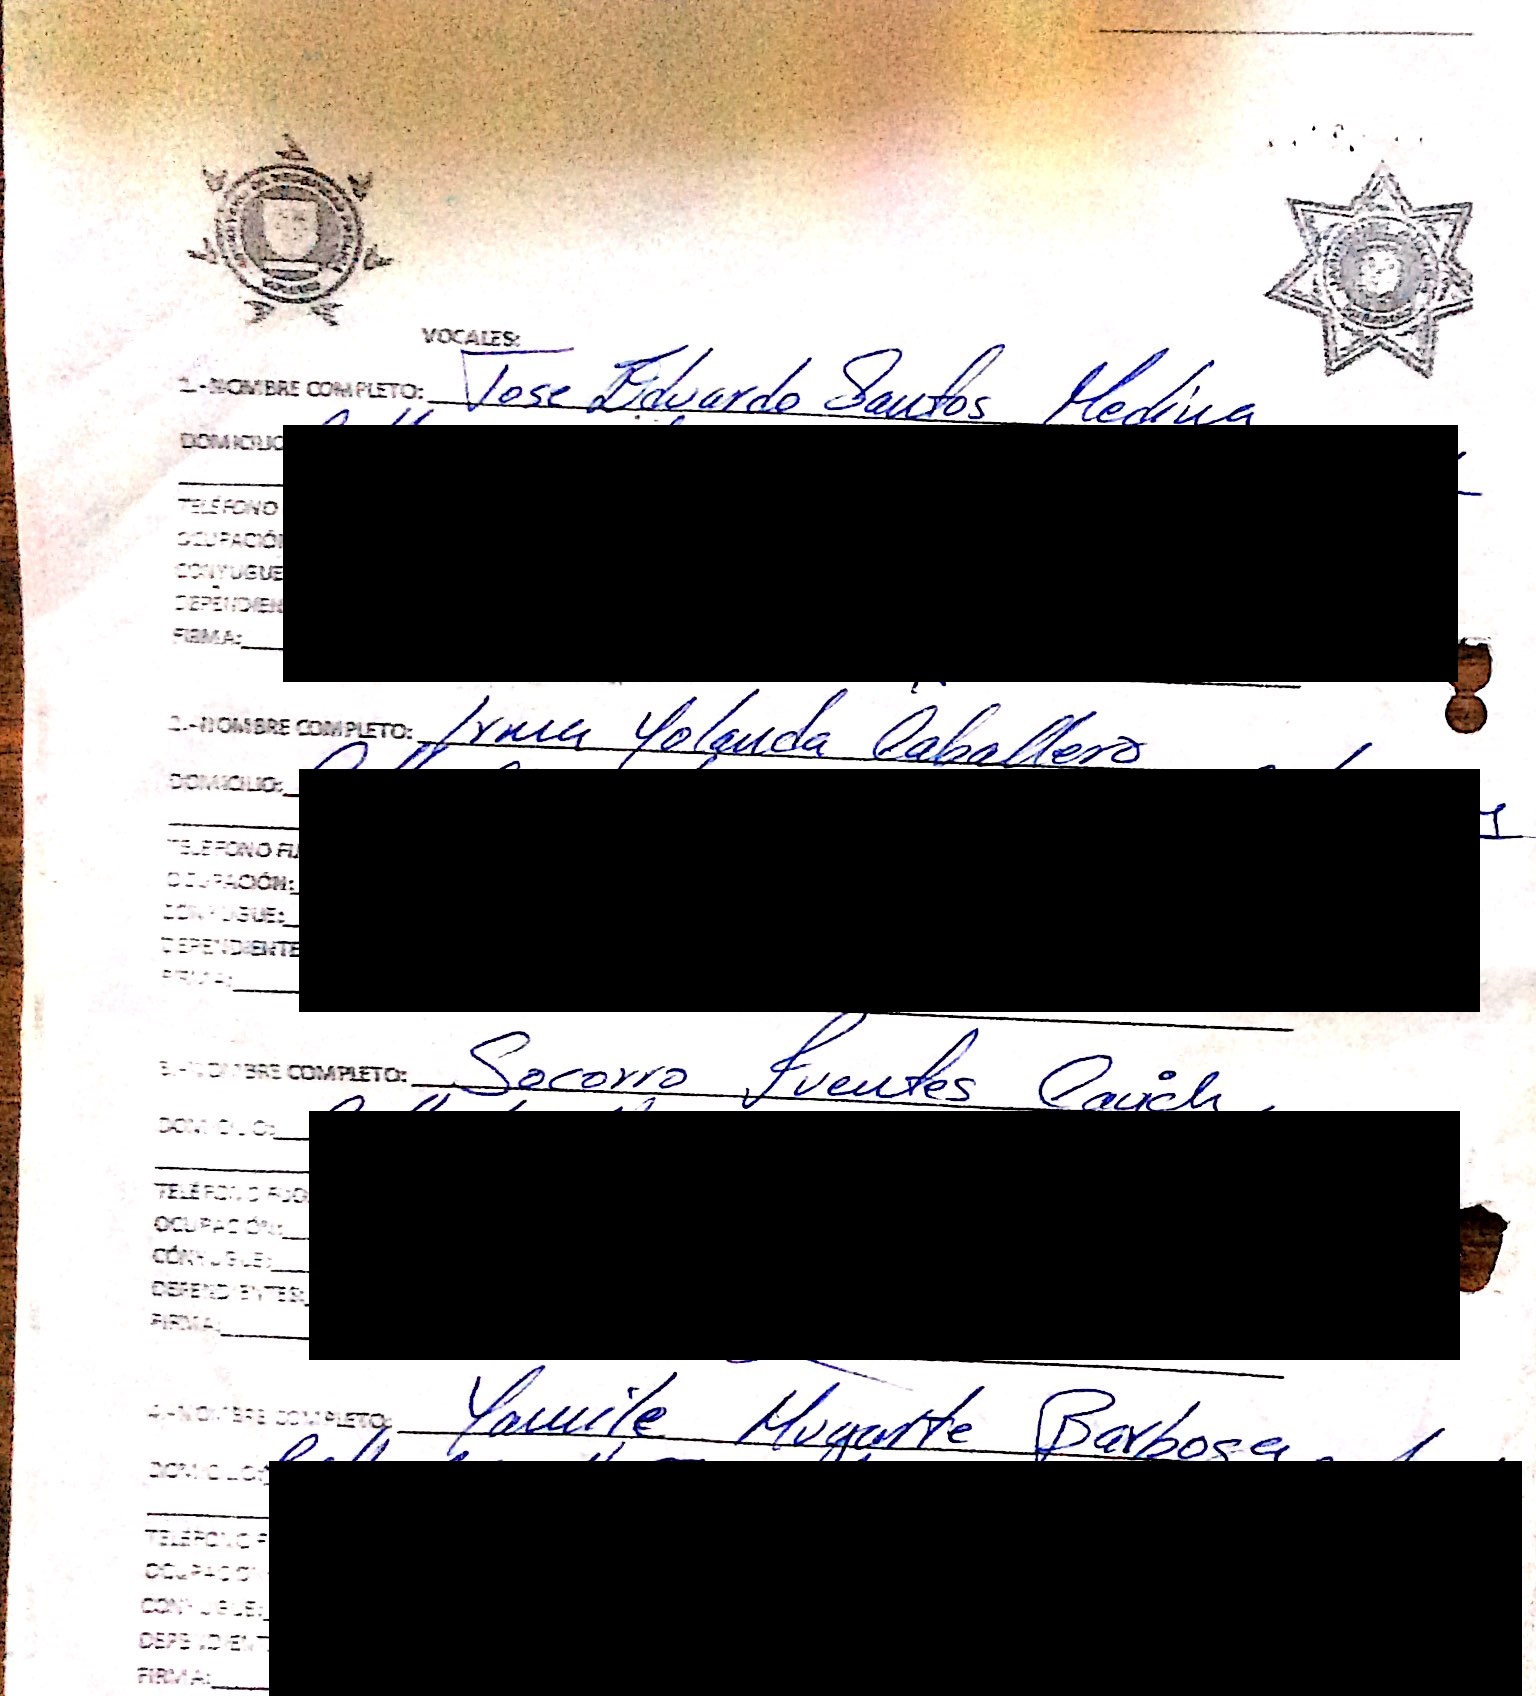 VOCALES:
1.-NOMBRE COMPLETO: Jose Eduardo Santos Medina
DOMICILIO
TELÉFONO
OCUPACIÓN
CONYUGUE
DEPENDIEN
FIRMA:
2.-NOMBRE COMPLETO: Irma Yolanda Caballero
DOMICILIO:
TELEFONO FIJ
OCUPACIÓN:
CONYUGUE:
DEPENDIENTE
FIRMA:
3.-NOMBRE COMPLETO: Socorro Fuentes Cauich
DOMICILIO:
TELÉFONO FIJO
OCUPACIÓN:
CÓNYUGUE:
DEPENDIENTES:
FIRMA:
4.-NOMBRE COMPLETO: Yamile Mugarte Barbosa
DOMICILIO:
TELEFONO F
OCUPACION
CONYUGUE:
DEPENDIENT
FIRMA: